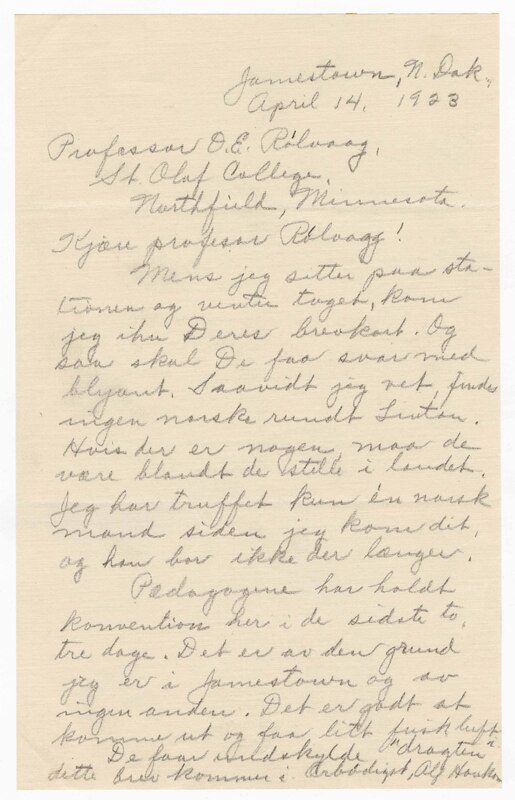 Jamestown, N. Dak.,
April 14, 1923
Professor O.E. Rölvaag,
St. Olaf College,
Northfield, Minnesota.
Kjære profesor Rölvaag!
Mens jeg sitter paa sta-
tionen og venter toget, kom
jeg ihu Deres brevkort. Og
saa skal De faa svar med
blyant. Saavidt jeg vet, findes
ingen norske rundt Linton.
Hvis der er nogen, maa de
være blandt de stelle i landet.
Jeg har truffet kun én norsk
mand siden jeg kom dit,
og han bor ikke der længer.
Pædagogene har holdt
konvention her i de sidste to,
tre dage. Det er av den grund
jeg er i Jamestown og av
ingen anden. Det er godt at
komme ut og faa litt frisk luft.
De faar undskylde "dragten"
dette brev kommer i. Ærbødigst, Alf